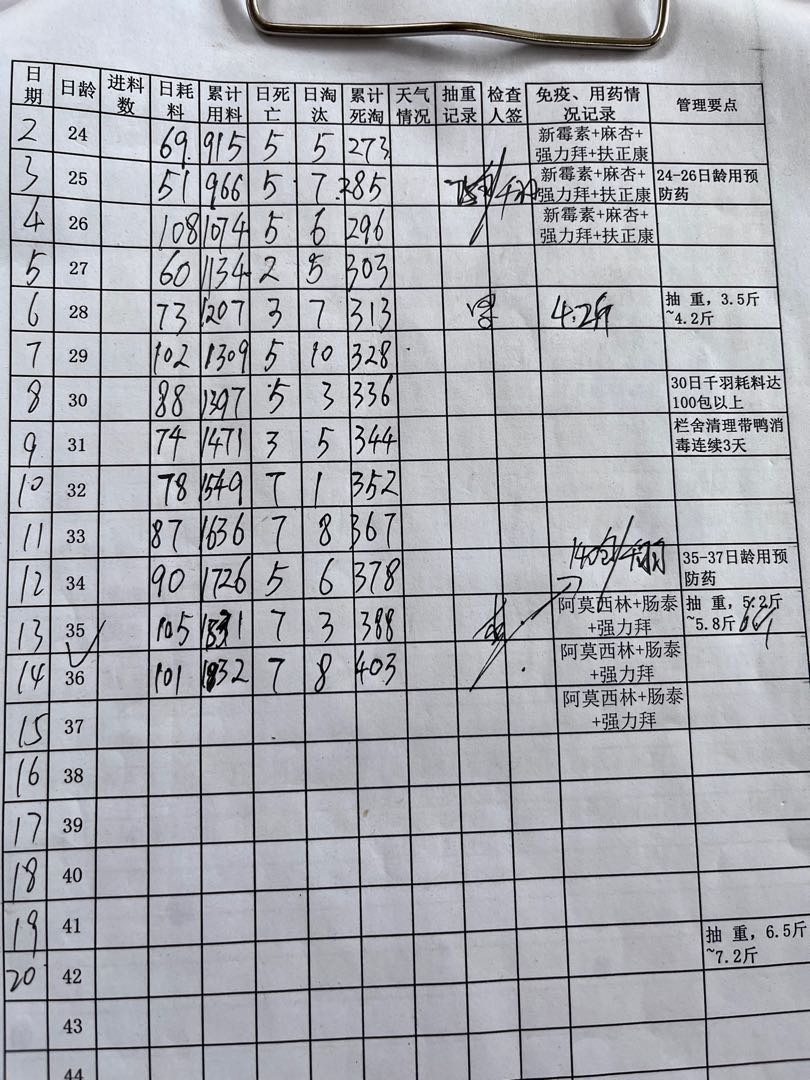 日期 日龄 进料数 日耗料 累计用料 日死亡 日淘汰 累计死淘 天气情况 抽重记录 检查人签 免疫、用药情况记录 管理要点
2 24 69 915 5 5 273 新霉素+麻杏+强力拜+扶正康
3 25 51 966 5 7 285 新霉素+麻杏+强力拜+扶正康 24-26日龄用预防药
4 26 108 1074 5 6 296 新霉素+麻杏+强力拜+扶正康
5 27 60 1134 2 5 303
6 28 73 1207 3 7 313 4.2斤 抽 重，3.5斤~4.2斤
7 29 102 1309 5 10 328
8 30 88 1397 5 3 336 30日千羽耗料达100包以上
9 31 74 1471 3 5 344 栏舍清理带鸭消毒连续3天
10 32 78 1549 7 1 352
11 33 87 1636 7 8 367
12 34 90 1726 5 6 378 140包/千羽 35-37日龄用预防药
13 35 105 1831 7 3 388 阿莫西林+肠泰+强力拜 抽 重，5.2斤~5.8斤
14 36 101 7 8 403 阿莫西林+肠泰+强力拜
15 37 阿莫西林+肠泰+强力拜
16 38
17 39
18 40
19 41
20 42 抽 重，6.5斤~7.2斤
43
44